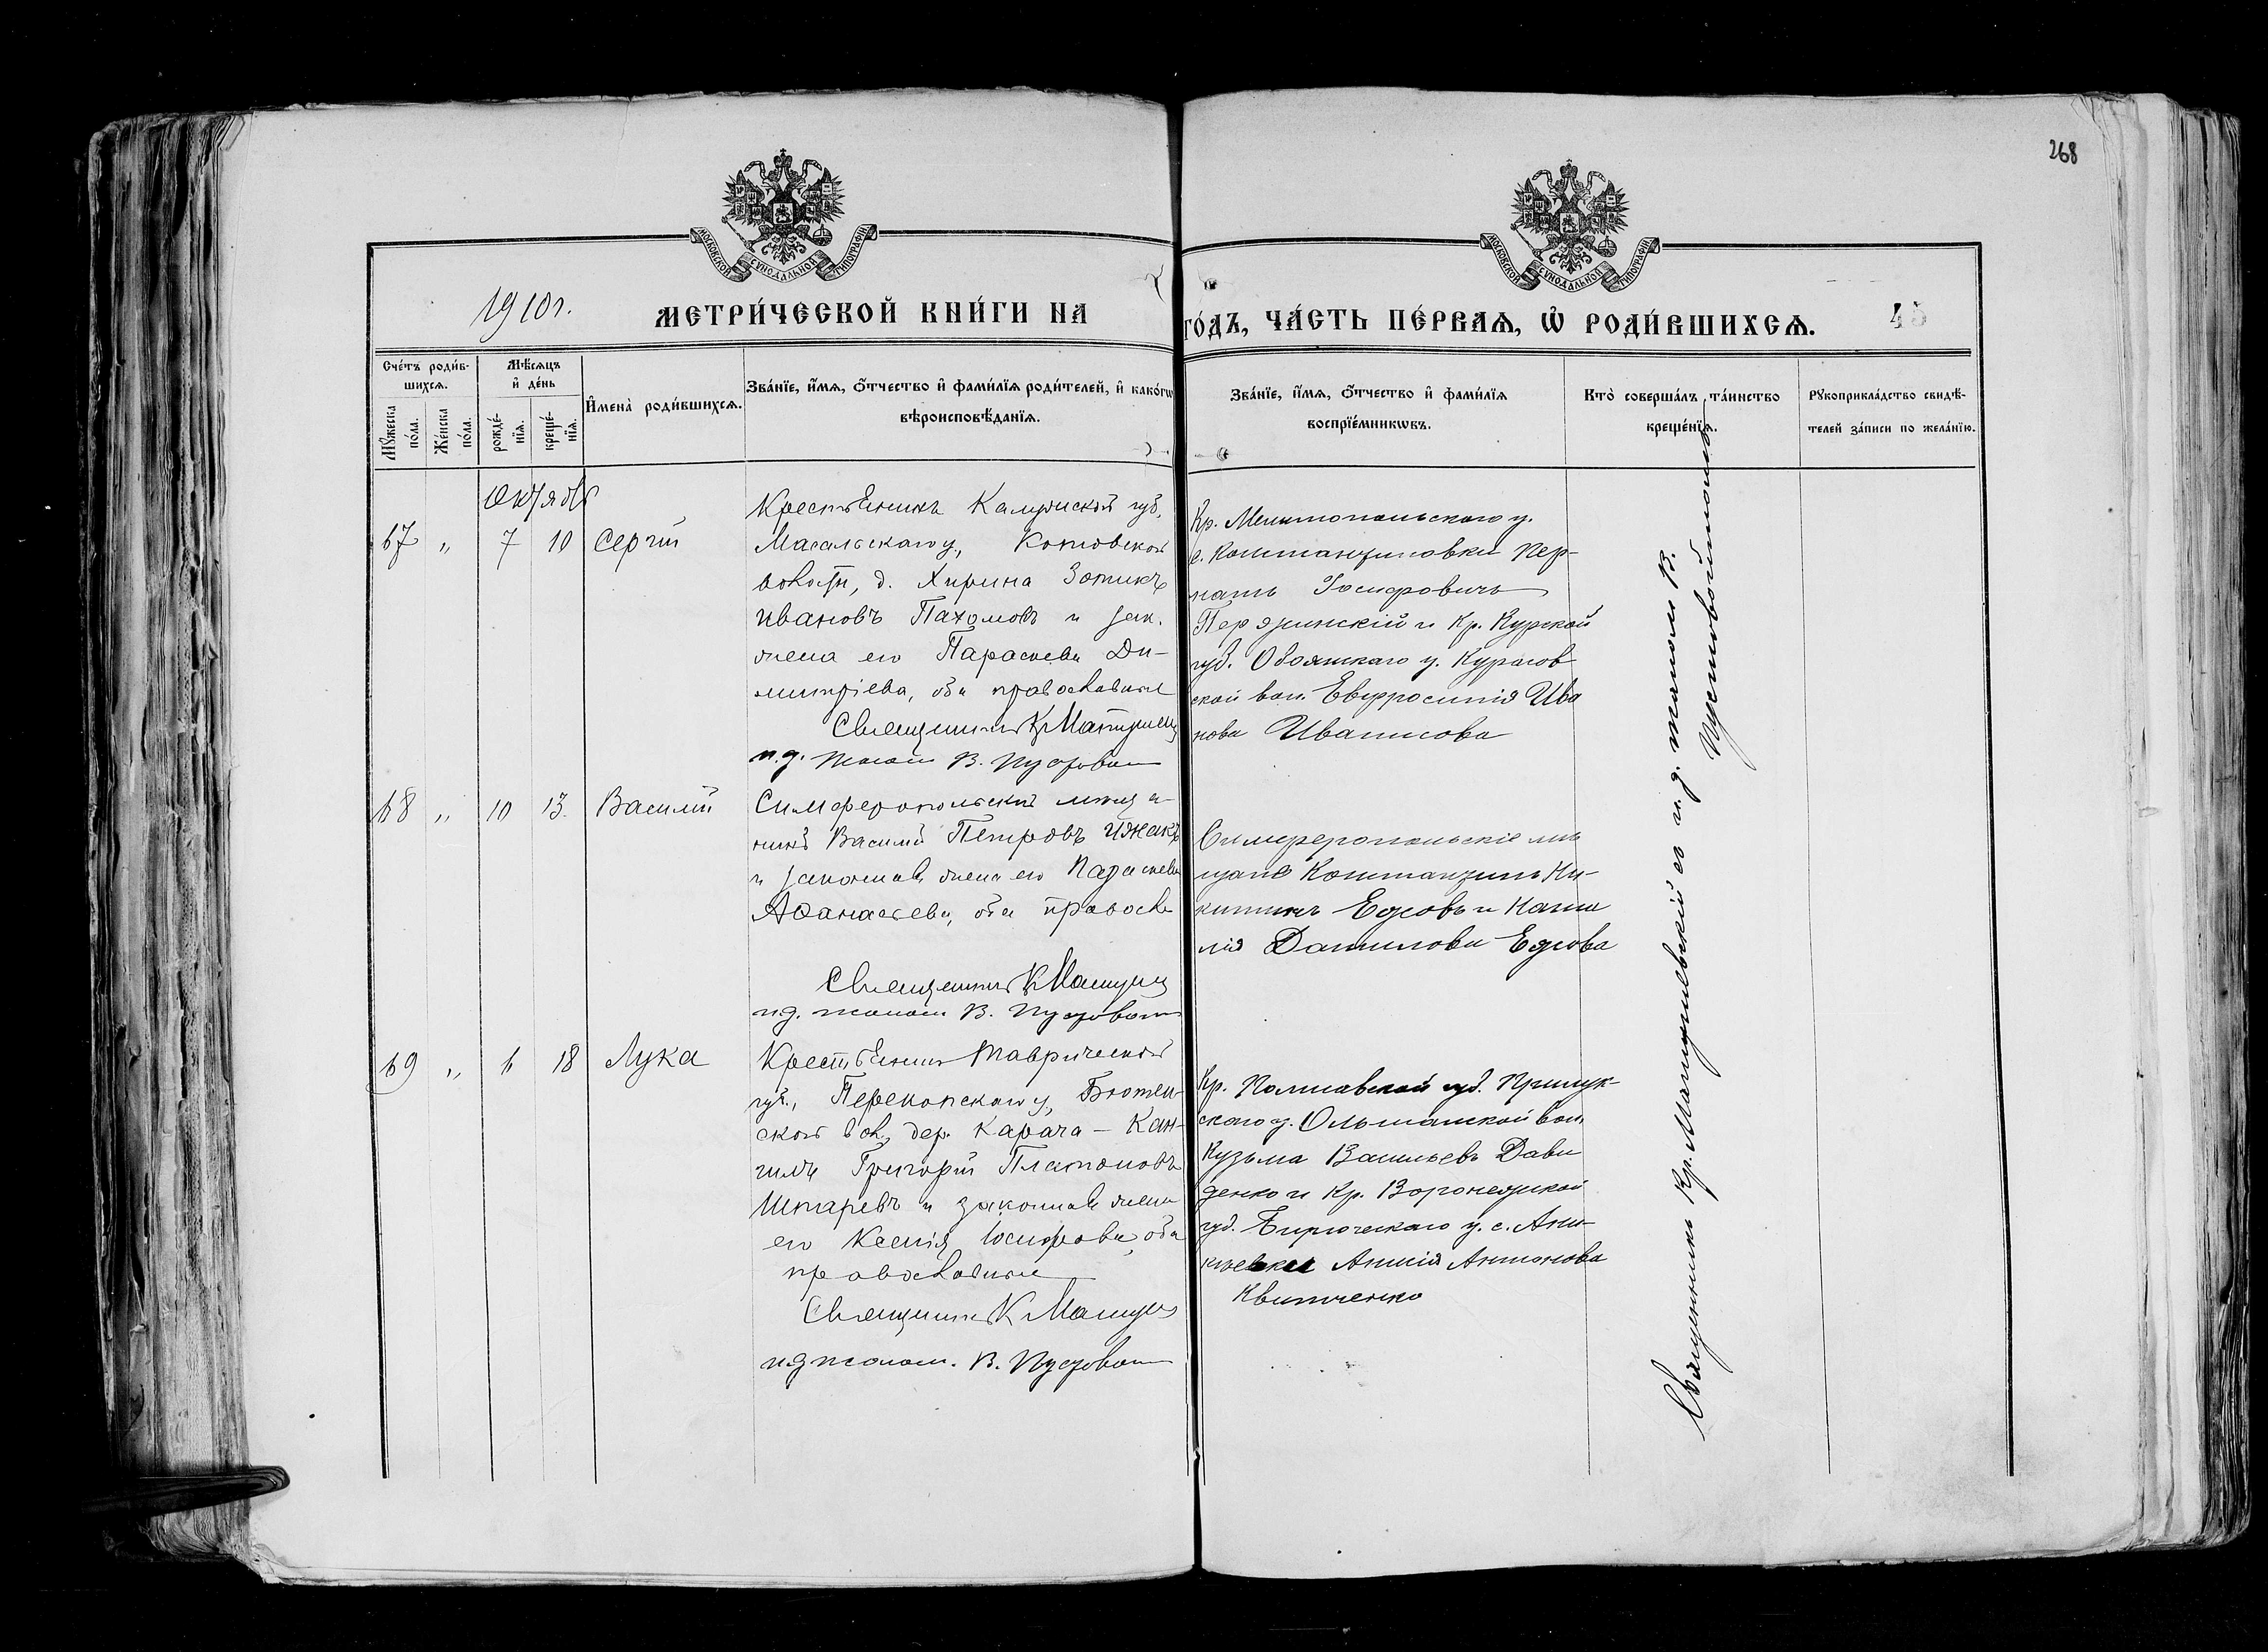 268
МОСКОВСКОЙ СУНОДАЛЬНОЙ ТИПОГРАФІИ
МОСКОВСКОЙ СУНОДАЛЬНОЙ ТИПОГРАФІИ
1910 г. МЕТРИ́ЧЕСКОЙ КНИ́ГИ НА
ГО́ДЪ, ЧА́СТЬ ПЕ́РВАѦ, Ѽ РОДИ́ВШИХСѦ. 45
Сче́тъ роди́в-
шихсѧ.
Мꙋ́жеска по́ла.
Же́нска по́ла.
Мѣ́сѧцъ
и҆ де́нь
рожде́-
нїѧ.
креще́-
нїѧ.
И҆мена̀ роди́вшихсѧ.
Зва́нїе, и҆́мѧ, ѻ҆́тчество и҆ фами́лїѧ роди́телей, и҆ како́гѡ
вѣроисповѣ́данїѧ.
Зва́нїе, и҆́мѧ, ѻ҆́тчество и҆ фами́лїѧ
воспрїе́мникѡвъ.
Кто̀ соверша́лъ та́инство
креще́нїѧ.
Рꙋкоприкла́дство свидѣ́-
телей за́писи по жела́нїю.
Октябрь
67 " 7 10 Сергій
Крестьянинъ Калужской губ.
Масальскаго у.,
д. Хирина Зотикъ
Ивановъ Пахомовъ и зак.
жена его Параскева Ди-
митріева, оба православные
Священникъ К Мацушевск
и. д. псалом В. Пустовойт
Кр. Мелитопольскаго у.
с. Константиновки
Іосифовичъ
и Кр. Курской
губ. Обоянскаго у.
ской вол. Евфросинія Ива
нова
68 " 10 13. Василій
Симферопольскій мѣща-
нинъ Василій Петровъ
и законная жена его Параскева
Аѳанасьева, оба правосл
Священникъ К Мацуш
и.д. псалом В. Пустовойт
Симферопольскіе мѣ
щане Константинъ Ни-
китинъ и Ната
лія Данилова
69 " 6 18 Лука
Крестьянинъ Таврической
губ., Перекопскаго у, Бютен-
ской вол, дер. Карача - Кан-
гилъ Григорій Платоновъ
и законная жена
его Ксенія Іосифова, оба
православные
Священникъ К Мацуш
и д псалом. В. Пустовойт
Кр. Полтавской губ. Прилук-
скаго у. Ольшанской вол.
Кузьма Васильевъ Дави
денко и Кр. Воронежской
губ. Бирюческаго у. с.
Антонова
Квитченко
Священникъ Кр. съ и. д. псалом В.
Пустовойтомъ